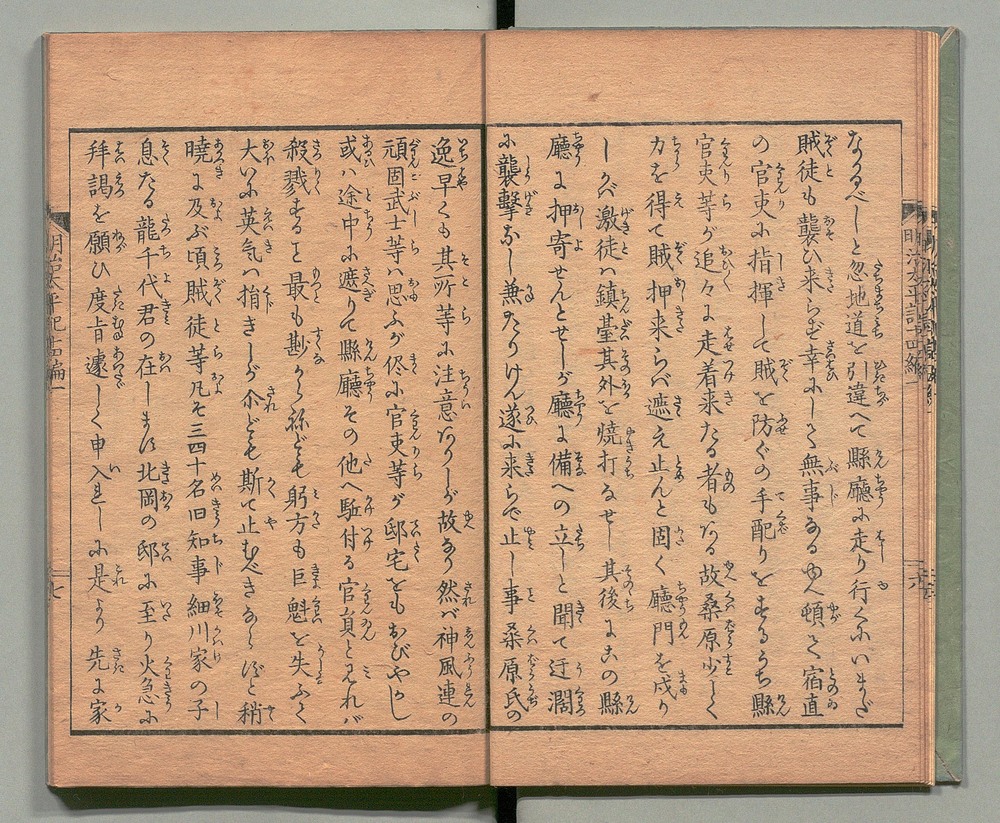 なるべしと忽地道を引違へて縣廳に走り行くにいまだ
賊徒も襲ひ来らず幸にして無事なるゆゑ頓て宿直
の官吏に指揮して賊を防ぐの手配りをするうち縣
官吏等が追々に走着来たる者もある故桑原少しく
力を得て賊押来らば遮え止んと固く廳門を戍り
しが激徒ハ鎮臺其外を焼打なせし其後にこの縣
廳に押寄せんとせしが廳に備への立しと聞て迂濶
に襲撃なし兼たりけん遂に来らで止し事桑原氏の
逸早くも其所等に注意ありしが故なり然バ神風連の
頑固武士等ハ思ふが侭に官吏等が邸宅をもおびやかし
或ハ途中に遮りて縣廳その他へ駈付る官員とみれバ
殺戮すること最も尠からねども躬方も巨魁を失ふて
大いに英気ハ挫きしが尒ども斯て止むべきならずと稍
曉に及ぶ頃賊徒等凡そ三四十名旧知事細川家の子
息たる龍千代君の在します北岡の邸に至り火急に
拝謁を願ひ度旨遽しく申入れしに是より先に家
明治太平記十四編一
明治太平記十四編一
十七